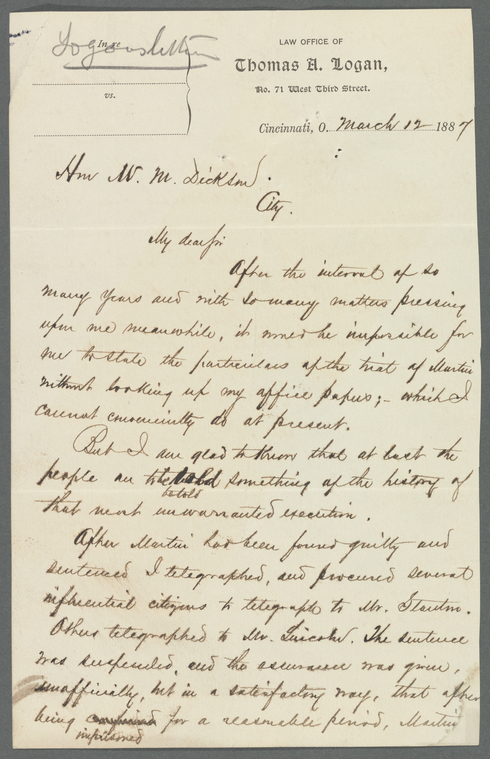 Logan's letter
In re
vs.
LAW OFFICE OF
Thomas A. Logan,
No. 71 West Third Street.
Cincinnati, O. March 12 1887
Hon W. M. Dickson.
City.
My dear Sir
After the interval of so
many years and with so many matters pressing
upon me meanwhile, it would be impossible for
me to state the particulars of the trial of Martin
without looking up my office papers; - which I
cannot conveniently do at present.
But I am glad to know that at last the
people are to be told something of the history of
be told
that most unwarranted execution.
After Martin had been found guilty and
sentenced I telegraphed, and procured several
influential citizens to telegraph to Mr. Stanton.
Others telegraphed to Mr. Lincoln. The sentence
was suspended, and the assurance was given,
unofficially, but in a satisfactory way, that after
being confined for a reasonable period, Martin
imprisoned